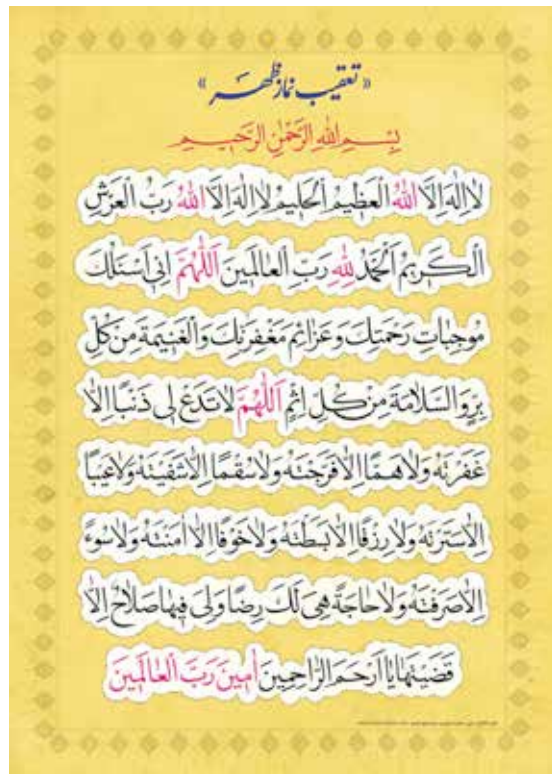 « تعقیب نماز ظهر »
بِسْمِ اللهِ الرَّحْمٰنِ الرَّحِيمِ
لا اِلٰهَ اِلَّا اللهُ الْعَظِيمُ الْحَلِيمُ لا اِلٰهَ اِلَّا اللهُ رَبُّ الْعَرْشِ
الْكَرِيمُ اَلْحَمْدُ لِلّٰهِ رَبِّ الْعالَمِينَ اَللّٰهُمَّ اِنّى اَسْئَلُكَ
مُوجِباتِ رَحْمَتِكَ وَ عَزائِمَ مَغْفِرَتِكَ وَالْغَنِيمَةَ مِنْ كُلِّ
بِرٍّ وَ السَّلامَةَ مِنْ كُلِّ اِثْمٍ اَللّٰهُمَّ لا تَدَعْ لى ذَنْبًا اِلاّٰ
غَفَرْتَهُ وَلا هَمًّا اِلاّٰ فَرَّجْتَهُ وَلا سُقْمًا اِلاّٰ شَفَيْتَهُ وَلا عَيْبًا
اِلاّٰ سَتَرْتَهُ وَلا رِزْقًا اِلاّٰ بَسَطْتَهُ وَلا خَوْفًا اِلاّٰ اٰمَنْتَهُ وَلا سُوءً
اِلاّٰ صَرَفْتَهُ وَلا حاجَةً هِىَ لَكَ رِضًا وَلى فيها صَلاحٌ اِلاّٰ
قَضَيْتَها يا اَرْحَمَ الرّاحِمِينَ اٰمِينَ رَبَّ الْعالَمِينَ